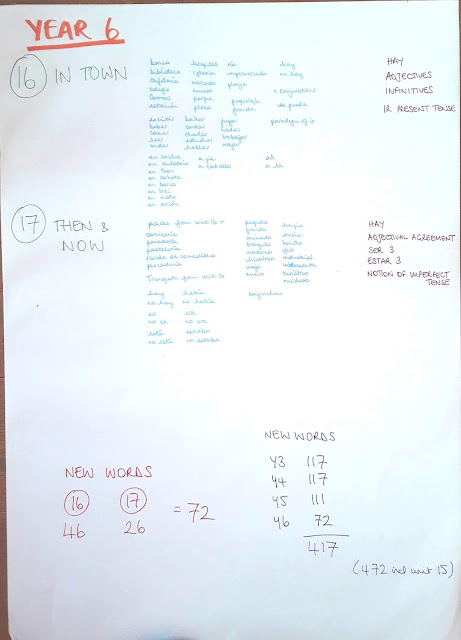 YEAR 6
16 IN TOWN
banco hospital río hay
biblioteca iglesia supermercado no hay
cafetería mercado playa
colegio museo + conjunctions
correos parque pequeño/a
estación plaza grande
escribir bailar jugar paradigm of ir
beber cantar nadar
comer charlar trabajar
leer estudiar viajar
hablar
en coche a pie al
en autobús a caballo a la
en tren
en barco
en bici
en moto
en avión
HAY
ADJECTIVES
INFINITIVES
IR PRESENT TENSE
17 THEN & NOW
places from unit 16 + pequeño limpio
carnicería grande
panadería animado bonito
pastelería tranquilo feo
tienda de comestibles moderno industrial
pescadería histórico
viejo
Transport from unit 16 turístico
hay había conjunctions
no hay no había
es era
no es no era
está estaba
no está no estaba
HAY
ADJECTIVAL AGREEMENT
SER 3
ESTAR 3
NOTION OF IMPERFECT
TENSE
NEW WORDS
16 17 = 72
46 26
NEW WORDS
Y3 117
Y4 117
Y5 111
Y6 72
417
(472 incl unit 15)